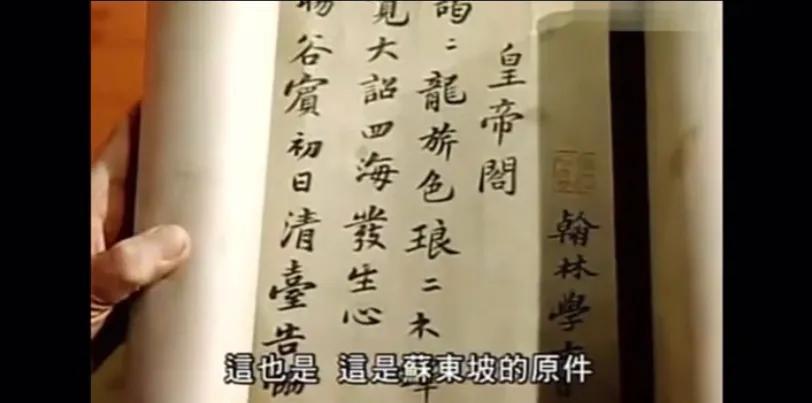 翰林學
皇帝閣
龍旂色琅二木
大詔四海發生心
谷賓初日清臺告
這也是 這是蘇東坡的原件